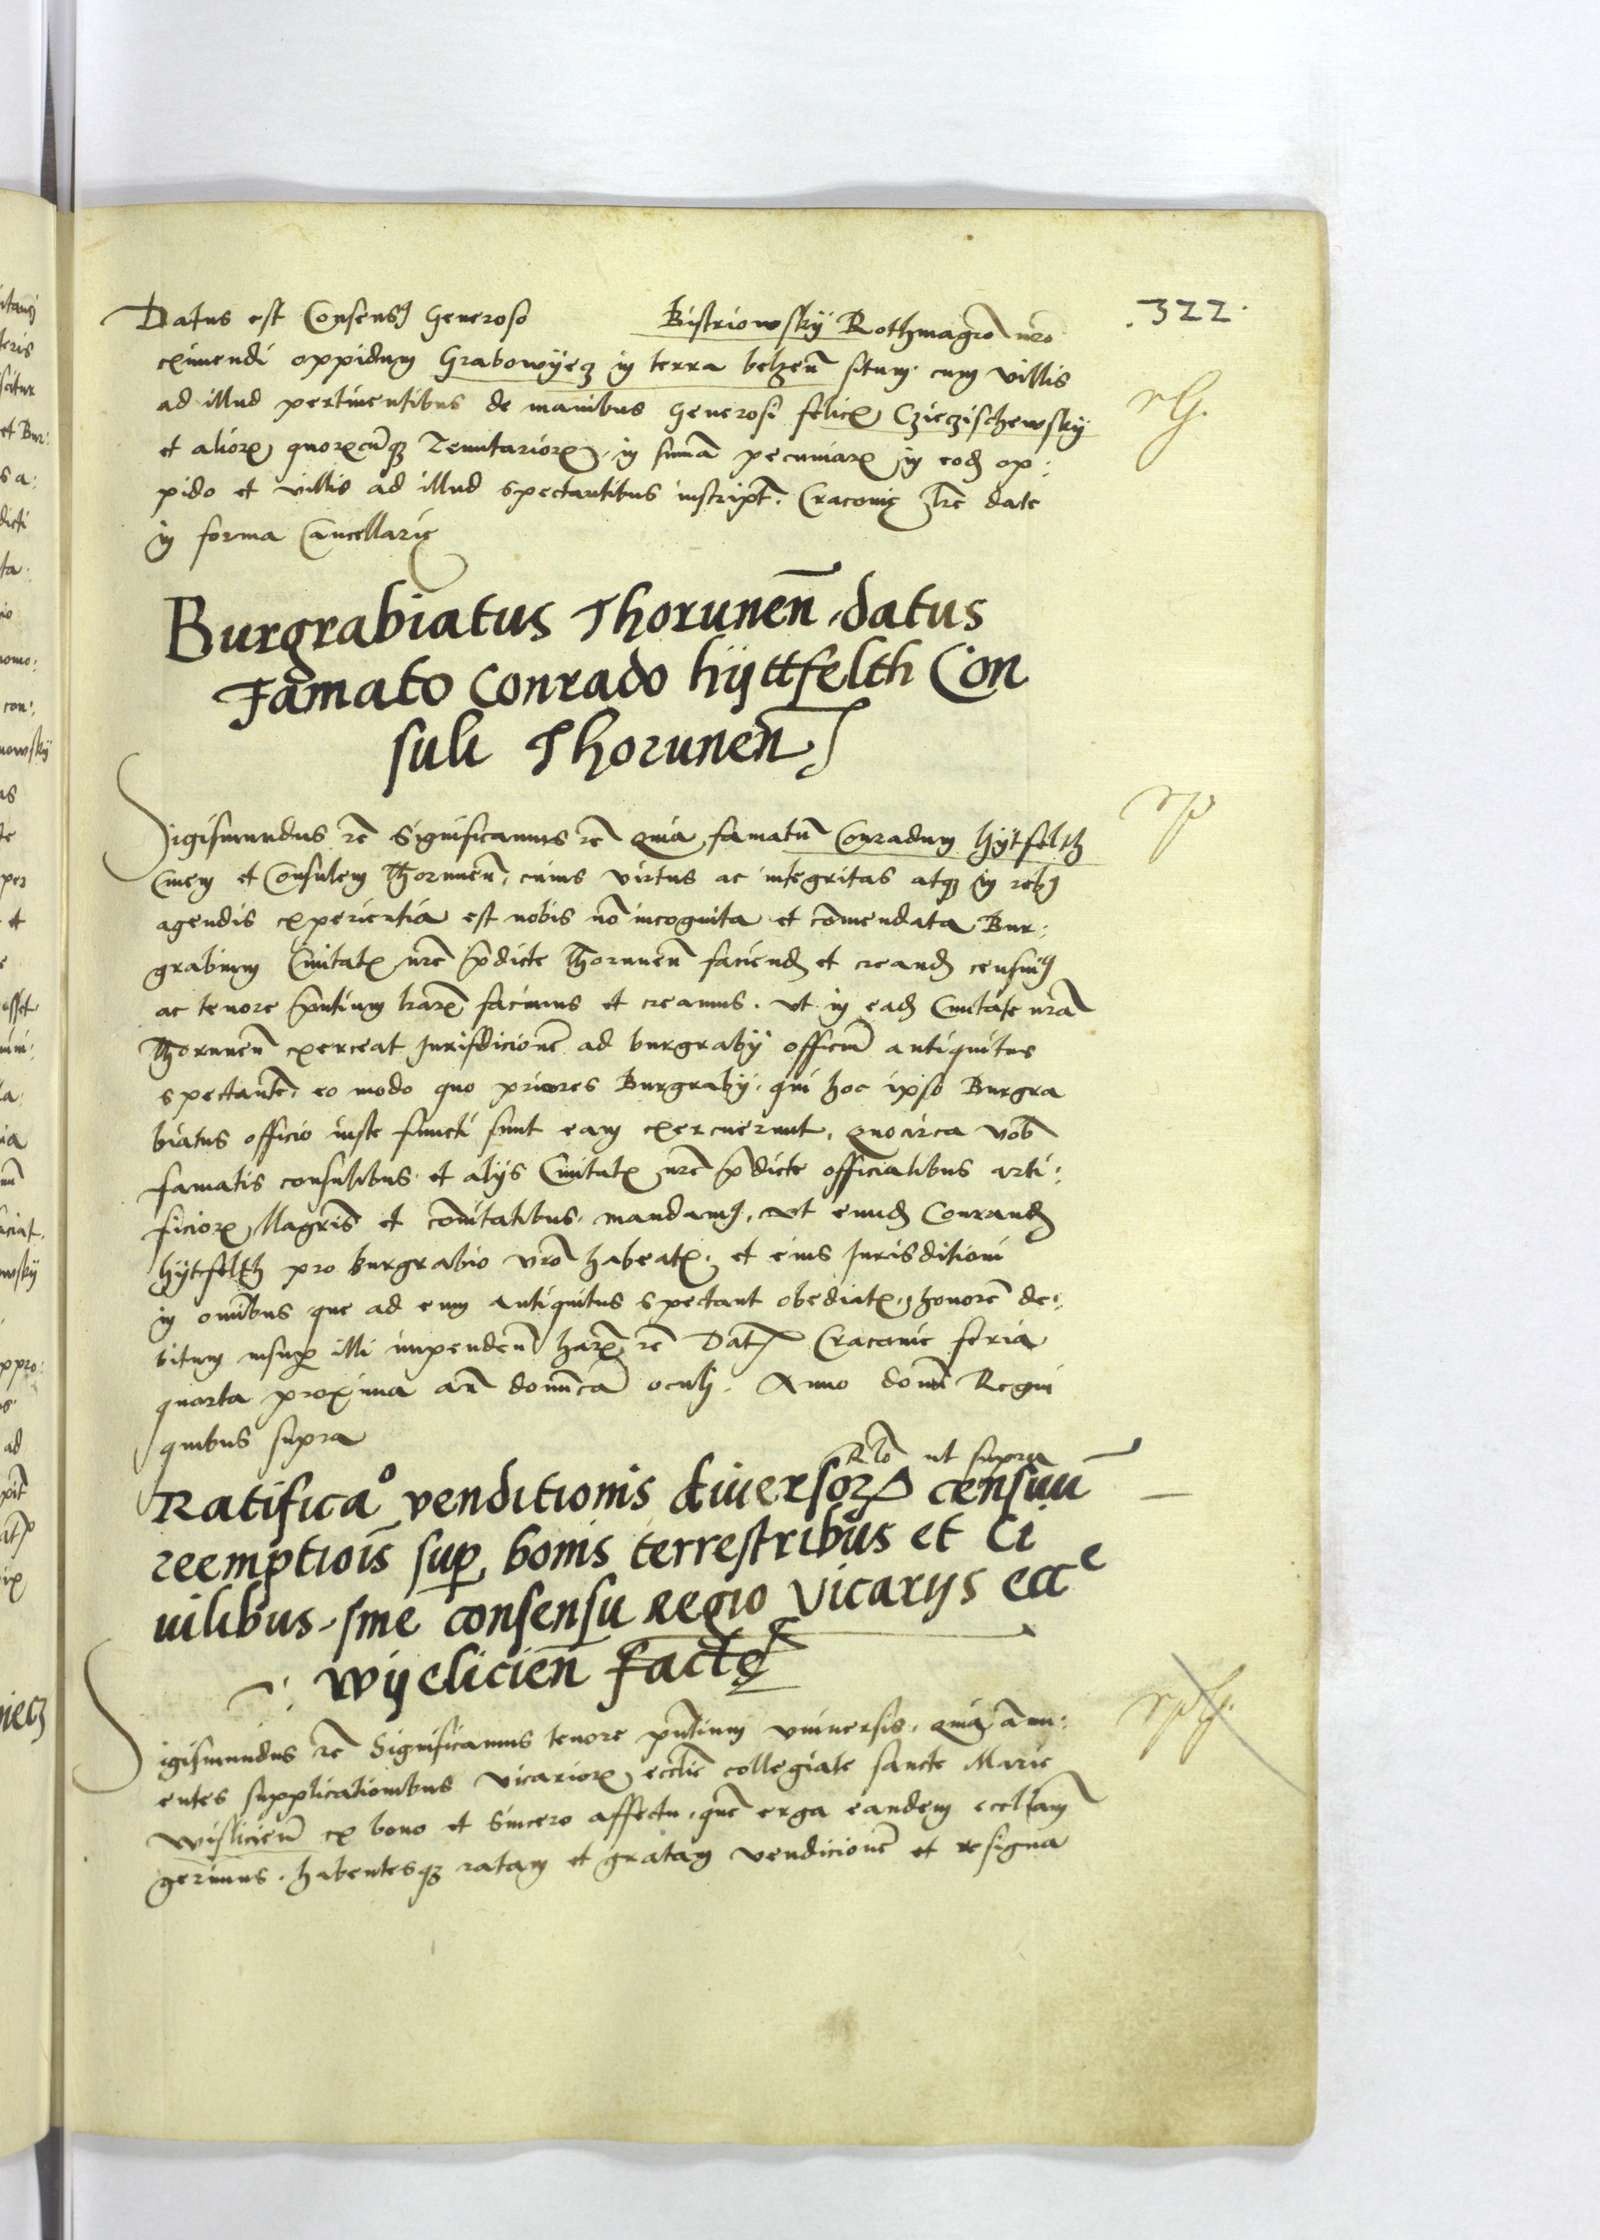 322.
Datus est Consens9 Generoso Bistriowskÿ Rothmagr̄o nr̄o
eximendi oppidum Grabowÿecz in terra belzen̄ situm cum villis
ad illud pertinentibus de manibus Generosi felicꝭ Czieczischewskÿ
et alioꝝ quoꝝcūqꝫ Tenutarioꝝ, in sum̄a pecuniaꝝ in eodꝫ op:
pido et villis ad illud spectantibus inscript. Cracovię Lr̄e date
in forma Cancellarię
Burgrabiatus Thorunen̄ datus
Famato Conrado hÿttfelth Con
suli Thorunen̄
Sigismundus rc̄ Significamus rc̄ Quia famatū Conradum hÿtfelth
Civem et Consulem Thorunen̄, cuius virtus ac integritas atqꝫ in reb9
agendis experientia est nobis nō incognita et cōmendata Bur:
grabium Civitatꝭ nrē p̄dicte Thorunen̄ faciendꝫ et creandꝫ censuim9
ac tenore p̄ntium lr̄aꝝ facimus et creamus. ut in eadꝫ Civitate nr̄a
Thorunen̄ exerceat Jurisdicionē ad burgrabÿ officiū antiquitus
spectantē, eo modo quo priores Burgrabÿ, qui hoc ipso Burgra
biatus officio iuste functi sunt eam exercuerunt, Quocirca vob̄
famatis consulibus et alÿs Civitatꝭ nrē p̄dicte officialibus arti:
ficioꝝ Magr̄is et cōmitatibus. mandam9, ut eundꝫ Conradꝫ
hÿtfelth pro burgrabio vr̄o habeatꝭ, et eius Jurisditioni
in om̄ibus que ad eum antiquitus spectant obediatꝭ, honorē de:
bitum insuꝑ illi impenden̄ haꝝ rc̄ Datꝭ Cracovie feria
quarta proxima an̄ dominicā oculi. Anno domī Regni
quibus supra
Rlō ut supra
Ratificaº venditionis diversoꝝ censuū
reemptiōis suꝑ bonis terrestribus et Ci
vilibus sine consensu Regio Vicarÿs eccᵉ
wÿslicien̄ Factę
Sigismundus rc̄ Significamus tenore pn̄tium universis. quia annu:
entes supplicationibus vicarioꝝ eccliē collegiate sancte Marie
wislicien̄ ex bono et Sincero affectu, quē erga eandem eccliam
gerimus. habentesqꝫ ratam et gratam vendicionē et resigna